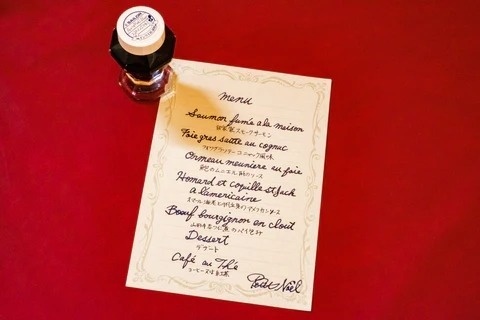 menu
Saumon fumé a la maison
自家製スモークサーモン
Foie gras sauté au cognac
フォワグラソテー コニャック風味
Ormeau meuniere au foie
鮑のムニエル 肝のソース
Homard et coquille st Jack
a l'américaine
オマール海老と帆立貝のアメリカンソース
Bœuf bourgignon en clout
Dessert
デザート
Café au Thé
コーヒー又は紅茶
Petit Noël